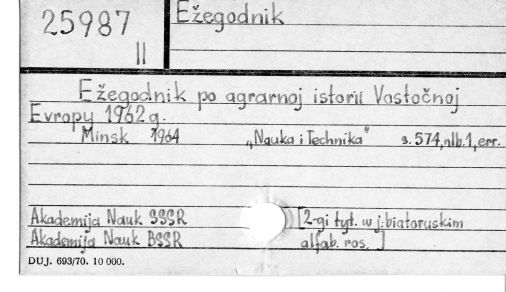 25987
II
Ežegodnik
Ežegodnik po agrarnoj istorii Vostočnoj
Evropy 1962 g.
Minsk 1964 „Nauka i Technika" s. 574, nlb. 1, err.
Akademija Nauk SSSR [2-gi tyt. w j. białoruskim
Akademija Nauk BSSR alfab. ros.]
DUJ. 693/70. 10 000.